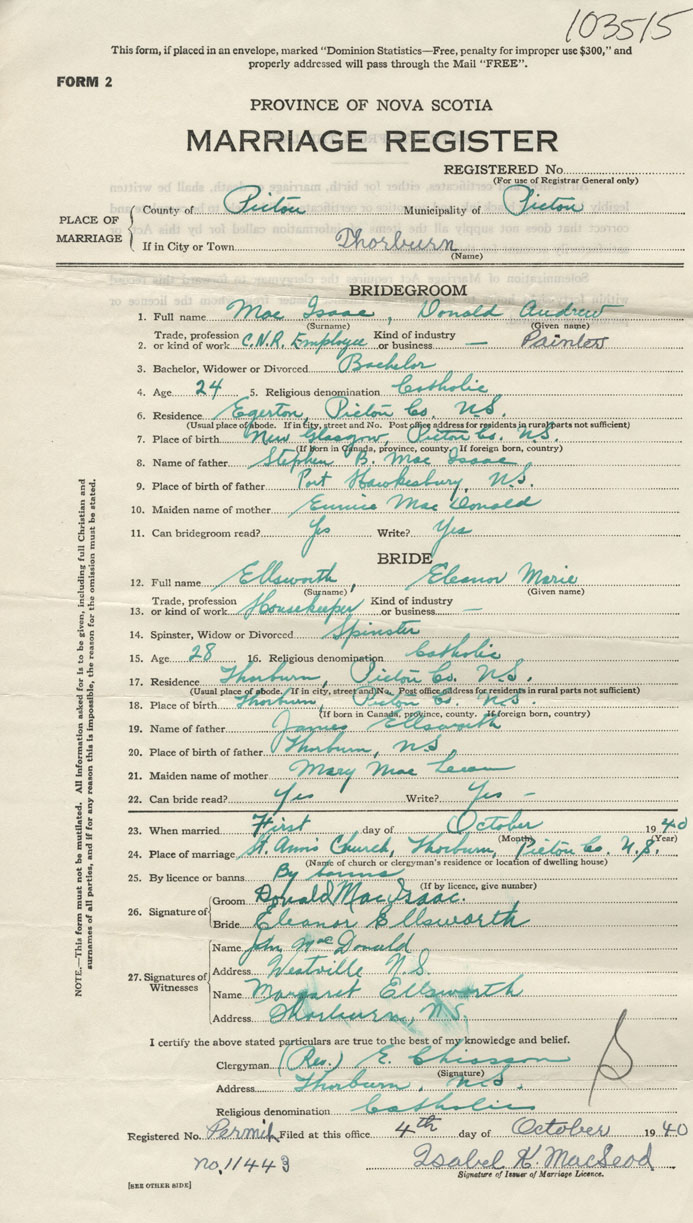 103515
This form, if placed in an envelope, marked "Dominion Statistics—Free, penalty for improper use $300," and
properly addressed will pass through the Mail "FREE".
FORM 2
PROVINCE OF NOVA SCOTIA
MARRIAGE REGISTER
REGISTERED No.
(For use of Registrar General only)
PLACE OF MARRIAGE
County of Pictou Municipality of Pictou
If in City or Town Thorburn
(Name)
BRIDEGROOM
1. Full name Mac Isaac, Donald Andrew
(Surname) (Given name)
2. Trade, profession or kind of work C.N.R. Employee Kind of industry or business — Painter
3. Bachelor, Widower or Divorced Bachelor
4. Age 24 5. Religious denomination Catholic
6. Residence Egerton, Pictou Co. N.S.
(Usual place of abode. If in city, street and No. Post office address for residents in rural parts not sufficient)
7. Place of birth New Glasgow, Pictou Co. N.S.
(If born in Canada, province, county. If foreign born, country)
8. Name of father Stephen B. Mac Isaac
9. Place of birth of father Port Hawkesbury, N.S.
10. Maiden name of mother Eunice Mac Donald
11. Can bridegroom read? Yes Write? Yes
BRIDE
12. Full name Ellsworth, Eleanor Marie
(Surname) (Given name)
13. Trade, profession or kind of work Housekeeper Kind of industry or business —
14. Spinster, Widow or Divorced Spinster
15. Age 28 16. Religious denomination Catholic
17. Residence Thorburn, Pictou Co. N.S.
(Usual place of abode. If in city, street and No. Post office address for residents in rural parts not sufficient)
18. Place of birth Thorburn, Pictou Co. N.S.
(If born in Canada, province, county. If foreign born, country)
19. Name of father James Ellsworth
20. Place of birth of father Thorburn, N.S
21. Maiden name of mother Mary Mac
22. Can bride read? Yes Write? Yes –
23. When married First day of October 1940
(Month) (Year)
24. Place of marriage St. Ann's Church, Thorburn, Pictou Co. N.S.
(Name of church or clergyman's residence or location of dwelling house)
25. By licence or banns By banns
(If by licence, give number)
26. Signature of
Groom Donald MacIsaac.
Bride Eleanor Ellsworth
27. Signatures of Witnesses
Name John MacDonald
Address Westville N.S.
Name Margaret Ellsworth
Address Thorburn, N.S.
I certify the above stated particulars are true to the best of my knowledge and belief.
Clergyman (Rev.) E. Chiasson
(Signature)
Address Thorburn, N.S.
Religious denomination Catholic
Registered No. Permit Filed at this office 4th day of October 1940
no. 11443 Isabel K. MacLeod
Signature of Issuer of Marriage Licence.
[SEE OTHER SIDE]
NOTE.—This form must not be mutilated. All information asked for is to be given, including full Christian and
surnames of all parties, and if for any reason this is impossible, the reason for the omission must be stated.